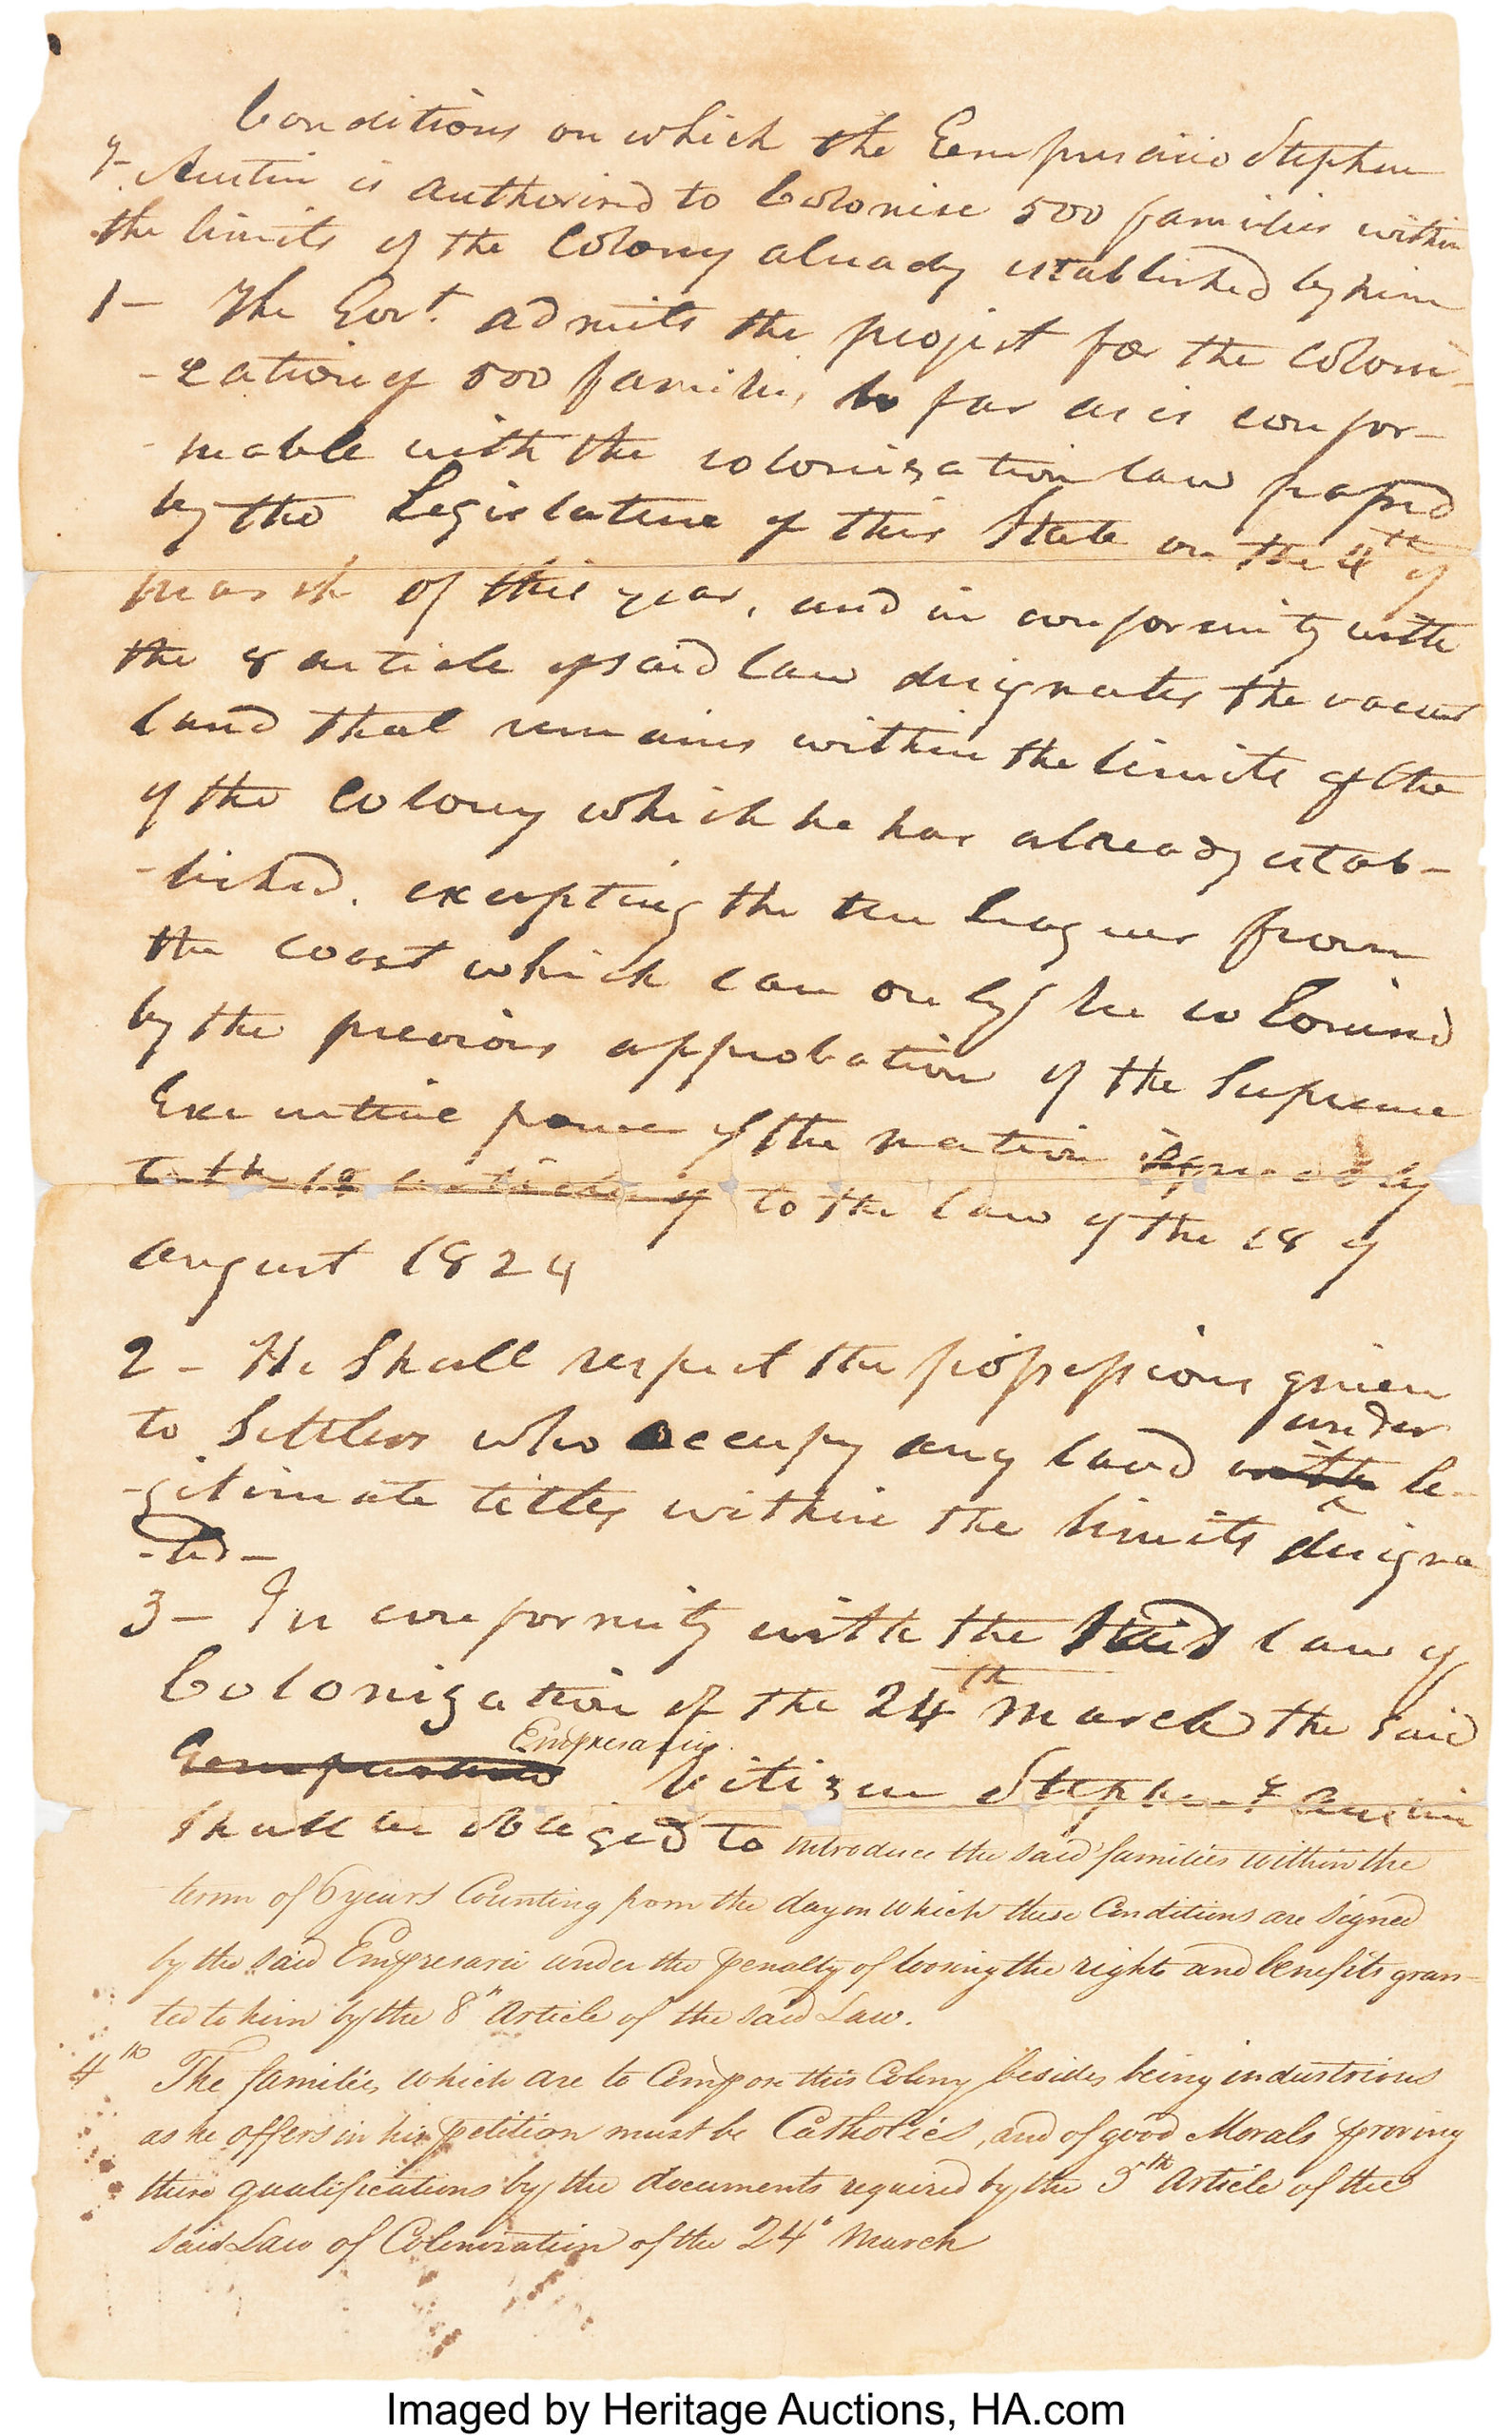 Conditions on which the Empresario Stephen
F. Austin is authorised to Colonise 500 families within
the limits of the Colony already established by him
1- The Govt. admits the project for the coloni-
-zation of 500 families, so far as is confor-
-mable with the colonization law passed
by the Legislature of this State on the 24th of
march of this year, and in conformity with
the 8 article of said law designates the vacant
land that remains within the limits of the
of the Colony which he has already estab-
-lished. excepting the ten leagues from
the coast which can only be colonised
by the previous approbation of the Supreme
Executive power of the nation agreeably
to the article of to the law of the 18 of
august 1824
2 - He Shall respect the possessions given
under
to Settlers who occupy any land with le-
-gitimate titles within the limits designa
-ted-
3 - In conformity with the said law of
Colonization of the 24th March the said
Empresario
Empresario Citizen Stephen F Austin
Shall be obliged to introduce the said families within the
term of 6 years Counting from the day on which these Conditions are signed
by the said Empresario under the penalty of loosing the rights and benefits gran-
ted to him by the 8" Article of the said Law.
4th The families which are to Compose this Colony besides being industrious
as he offers in his petition must be Catholics, and of good Morals proving
these qualifications by the documents required by the 5th Article of the
said Law of Colonization of the 24" March
Imaged by Heritage Auctions, HA.com